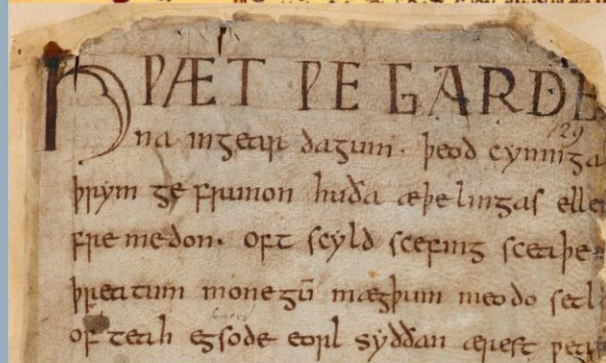 HǷÆT ǷE GARDE
na ingear dagum. þeod cyninga
þrym ge frunon huða æþelingas elle
fre medon. oft scyld scefing sceaþe
þreatum monegū mægþum meodo setl
of teah egsode eorl syððan ærest